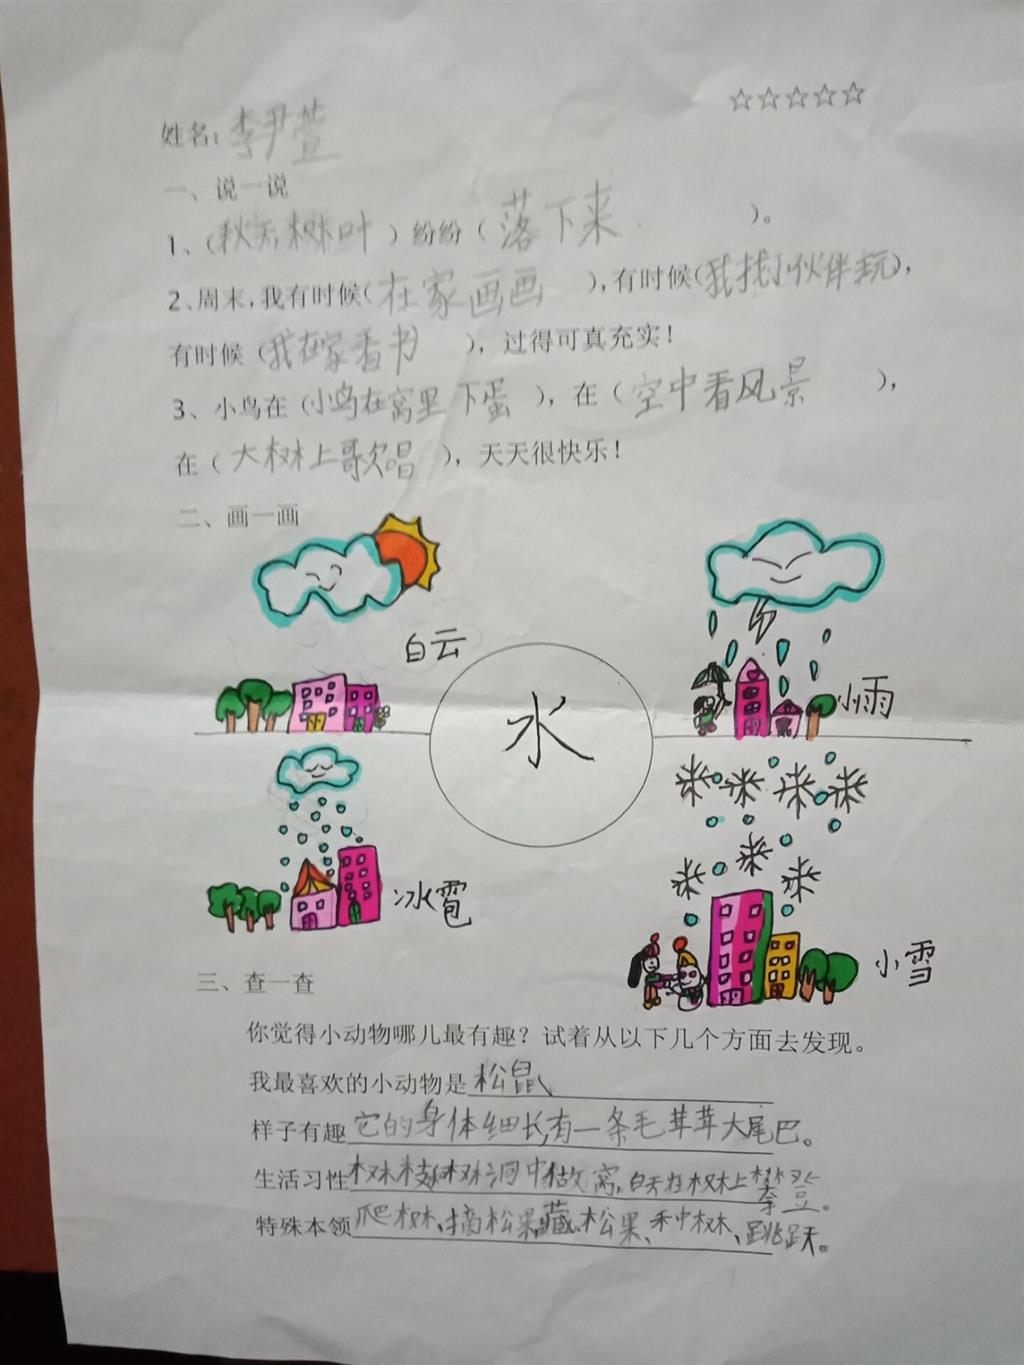 ☆☆☆☆☆
姓名:李尹萱
一、说一说
1、(秋天树叶)纷纷(落下来)。
2、周末,我有时候(在家画画),有时候(我找小伙伴玩),
有时候(我在家看书),过得可真充实!
3、小鸟在(小鸟在窝里下蛋),在(空中看风景),
在(大树上歌唱),天天很快乐!
二、画一画
白云
水
小雨
冰雹
小雪
三、查一查
你觉得小动物哪儿最有趣?试着从以下几个方面去发现。
我最喜欢的小动物是松鼠
样子有趣它的身体细长,有一条毛茸茸大尾巴。
生活习性树枝树洞中做窝,白天在树上攀登。
特殊本领爬树、摘松果、藏松果、种树、跳跃。